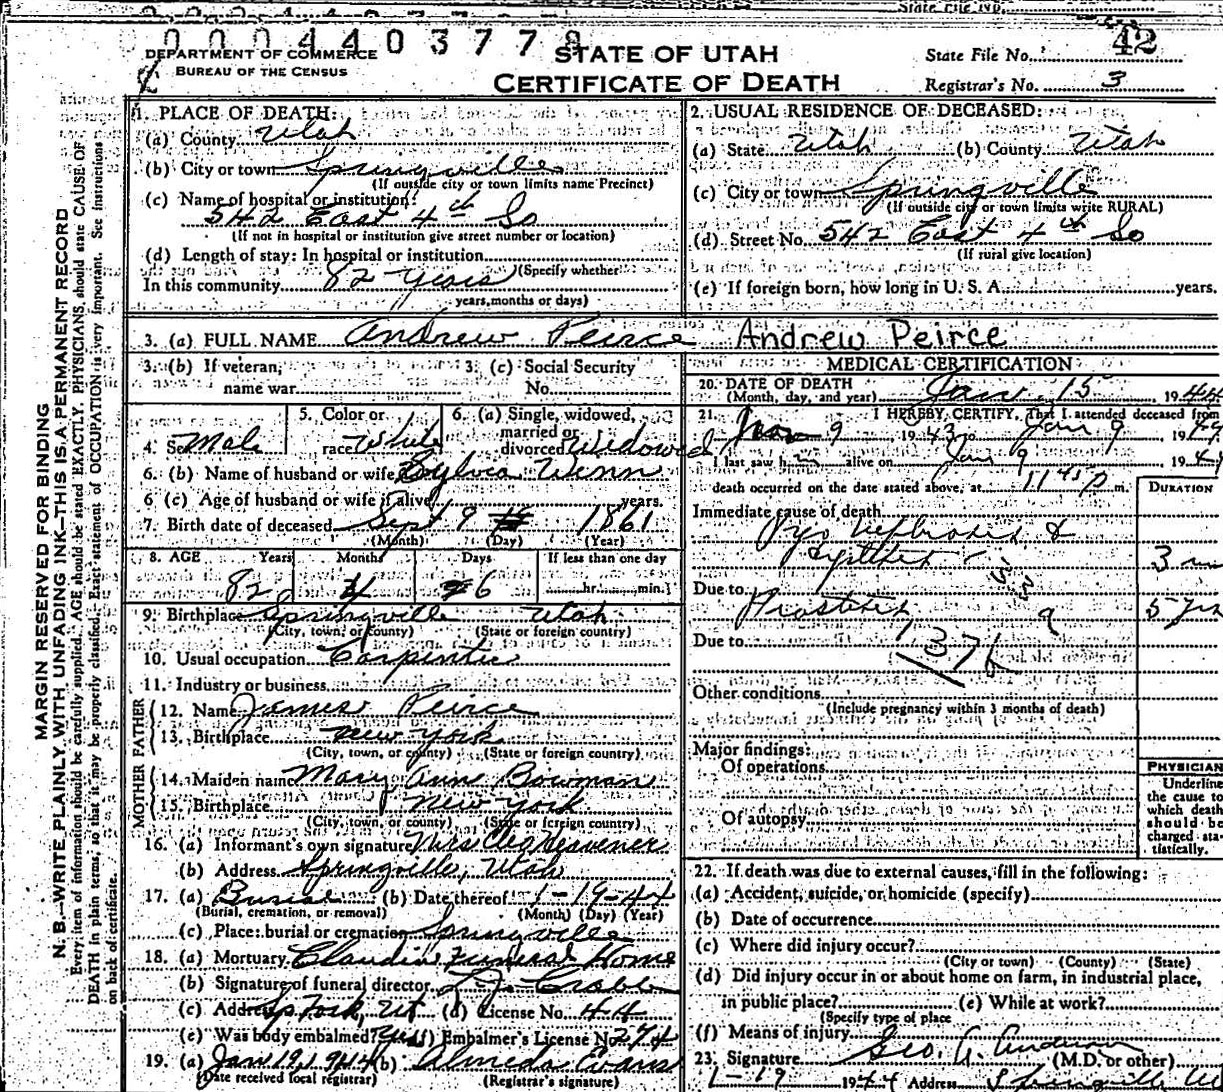 State File No.
0004403779
DEPARTMENT OF COMMERCE
BUREAU OF THE CENSUS
STATE OF UTAH
CERTIFICATE OF DEATH
State File No. 42
Registrar's No. 3
MARGIN RESERVED FOR BINDING
N. B.—WRITE PLAINLY WITH UNFADING INK—THIS IS A PERMANENT RECORD
Every item of information should be carefully supplied. AGE should be stated EXACTLY. PHYSICIANS should state CAUSE OF
DEATH in plain terms, so that it may be properly classified. Exact statement of OCCUPATION is very important. See instructions
on back of certificate.
1. PLACE OF DEATH:
(a) County Utah
(b) City or town Springville
(If outside city or town limits name Precinct)
(c) Name of hospital or institution:
542 East 4th So
(If not in hospital or institution give street number or location)
(d) Length of stay: In hospital or institution
(Specify whether
In this community 82 years
years, months or days)
2. USUAL RESIDENCE OF DECEASED:
(a) State Utah (b) County Utah
(c) City or town Springville
(If outside city or town limits write RURAL)
(d) Street No. 542 East 4th So
(If rural give location)
(e) If foreign born, how long in U. S. A. years.
3. (a) FULL NAME Andrew Peirce Andrew Peirce
3. (b) If veteran, name war
3. (c) Social Security No.
4. Sex Male
5. Color or race White
6. (a) Single, widowed, married or divorced Widowed
6. (b) Name of husband or wife Sylvia Wenn
6 (c) Age of husband or wife if alive years.
7. Birth date of deceased Sept 9 1861
(Month) (Day) (Year)
8. AGE Years Months Days If less than one day
82 4 6 hr. min.
9. Birthplace Springville Utah
(City, town, or county) (State or foreign country)
10. Usual occupation Carpenter
11. Industry or business
FATHER
12. Name James Peirce
13. Birthplace New York
(City, town, or county) (State or foreign country)
MOTHER
14. Maiden name Mary Ann Bowman
15. Birthplace New York
(City, town, or county) (State or foreign country)
16. (a) Informant's own signature Mrs Cleo Weavener
(b) Address Springville, Utah
17. (a) Burial (b) Date thereof 1-19-44
(Burial, cremation, or removal) (Month) (Day) (Year)
(c) Place: burial or cremation Springville
18. (a) Mortuary Claudin Funeral Home
(b) Signature of funeral director Crabb
(c) Address Sp Fork, Ut (d) License No. 44
(e) Was body embalmed? Yes (f) Embalmer's License No. 274
19. (a) Jan 19, 1944 (b) Almeda Evans
(Date received local registrar) (Registrar's signature)
MEDICAL CERTIFICATION
20. DATE OF DEATH Jan. 15 1944
(Month, day, and year)
21. I HEREBY CERTIFY, That I attended deceased from
Nov 9 1943 to Jan 9, 1944
I last saw h m alive on Jan 9 1944
death occurred on the date stated above, at 11 45 P m.
DURATION
Immediate cause of death
Pyo nephrosis &
3
Due to
Prostatitis 5 yrs
33
9
Due to
137b
Other conditions
(Include pregnancy within 3 months of death)
Major findings:
Of operations
Of autopsy
PHYSICIAN
Underline
the cause to
which death
should be
charged sta-
tistically.
22. If death was due to external causes, fill in the following:
(a) Accident, suicide, or homicide (specify)
(b) Date of occurrence
(c) Where did injury occur?
(City or town) (County) (State)
(d) Did injury occur in or about home on farm, in industrial place,
in public place? (e) While at work?
(Specify type of place
(f) Means of injury
23. Signature Geo. A. Anderson (M.D. or other)
1-19 1944 Address Springville Ut